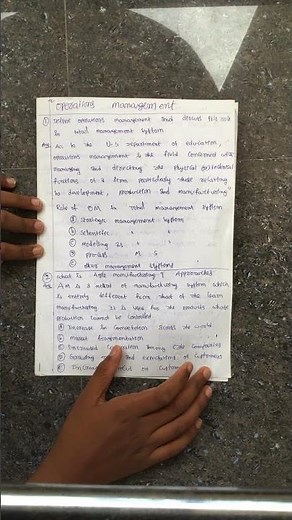 operations management
① Define operations management and discuss its role
in total management system
Ans As to the U.S Department of education,
operations management is the field concerned with
managing and directing the physical and/or technical
functions of a firm particularly those relating
to development, production and manufacturing"
Role of OM in total management system
ⓐ strategic management system
ⓑ scientific " "
ⓒ modelling is " "
ⓓ process M S
ⓔ data management system
② what is Agile manufacturing? Approaches
Ans AM is a method of manufacturing system which
is entirely different from that of the lean
manufacturing. It is used for the products whose
production cannot be controlled
ⓐ Increase in competition across the world
ⓑ Market Fragmentation
ⓒ Increased cooperation among competitors
ⓓ Growing need and expectations of customers
ⓔ on customers